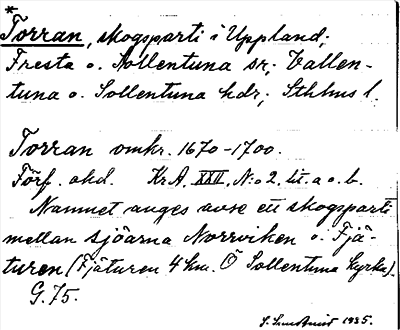 *
Torran, skogsparti i Uppland;
Fresta o. Sollentuna sr; Vallen-
tuna o. Sollentuna hdr; Sthlms l.
Torran omkr. 1670-1700.
Förf. okd. KrA, XXII, N:o 2, lit. a o. b.
Namnet anges avse ett skogsparti
mellan sjöarna Norrviken o. Fjä-
turen (Fjäturen 4 km. Ö Sollentuna kyrka).
G. 75.
1935.